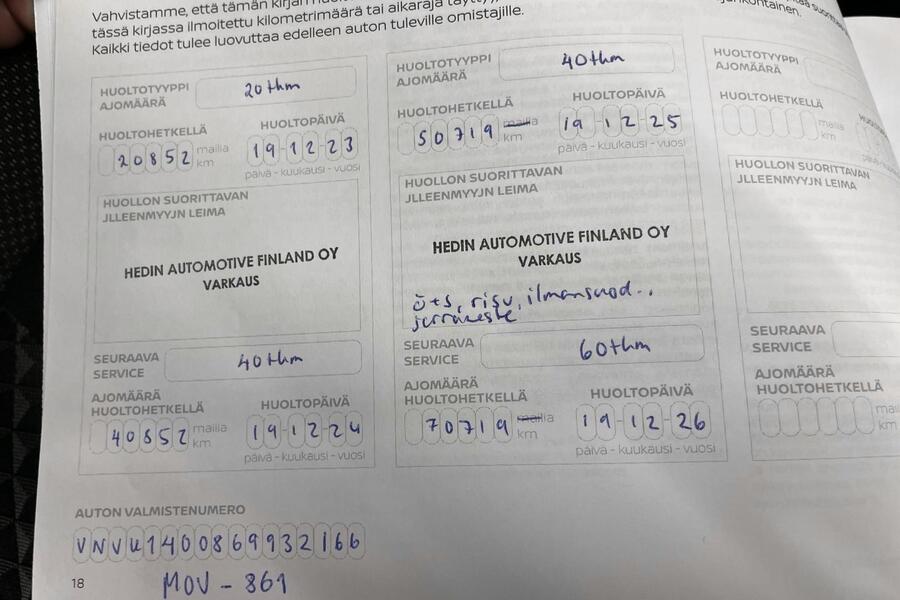 Vahvistamme, että tämän kirjan
tässä kirjassa ilmoitettu kilometrimäärä tai aikaraja
Kaikki tiedot tulee luovuttaa edelleen auton tuleville omistajille.
HUOLTOTYYPPI
AJOMÄÄRÄ
20thm
HUOLTOHETKELLÄ
20852 mailia
km
HUOLTOPÄIVÄ
19-12-23
päivä - kuukausi - vuosi
HUOLLON SUORITTAVAN
JLLEENMYYJN LEIMA
HEDIN AUTOMOTIVE FINLAND OY
VARKAUS
SEURAAVA
SERVICE
40thm
AJOMÄÄRÄ
HUOLTOHETKELLÄ
40852 mailia
km
HUOLTOPÄIVÄ
19-12-24
päivä - kuukausi - vuosi
HUOLTOTYYPPI
AJOMÄÄRÄ
40thm
HUOLTOHETKELLÄ
50719 mailia
km
HUOLTOPÄIVÄ
19-12-25
päivä - kuukausi - vuosi
HUOLLON SUORITTAVAN
JLLEENMYYJN LEIMA
HEDIN AUTOMOTIVE FINLAND OY
VARKAUS
ö+s, risu, ilmansuod..
jarruneste
SEURAAVA
SERVICE
60thm
AJOMÄÄRÄ
HUOLTOHETKELLÄ
70719 mailia
km
HUOLTOPÄIVÄ
19-12-26
päivä - kuukausi - vuosi
HUOLTOTYYPPI
AJOMÄÄRÄ
HUOLTOHETKELLÄ
mailia
km
HUOLLON SUORITTAVAN
JLLEENMYYJN LEIMA
SEURAAVA
SERVICE
AJOMÄÄRÄ
HUOLTOHETKELLÄ
km
AUTON VALMISTENUMERO
VNVU1400869932166
18
MOV - 861